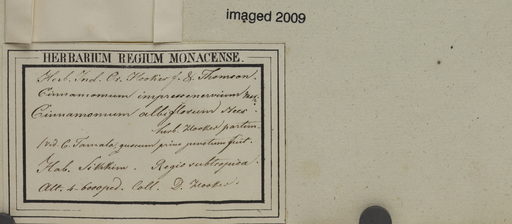 imaged 2009
HERBARIUM REGIUM MONACENSE.
Herb. Ind. Or. Hooker f. & Thomson.
Cinnamomum impressinervium
Cinnamomum albiflorum Nees.
herb. Hooker partim.
C. Tamala, quorum prius fuit.
Hab. Sikkim. Regio subtropica.
Alt. 4-6000 ped. Coll. D. Hooker